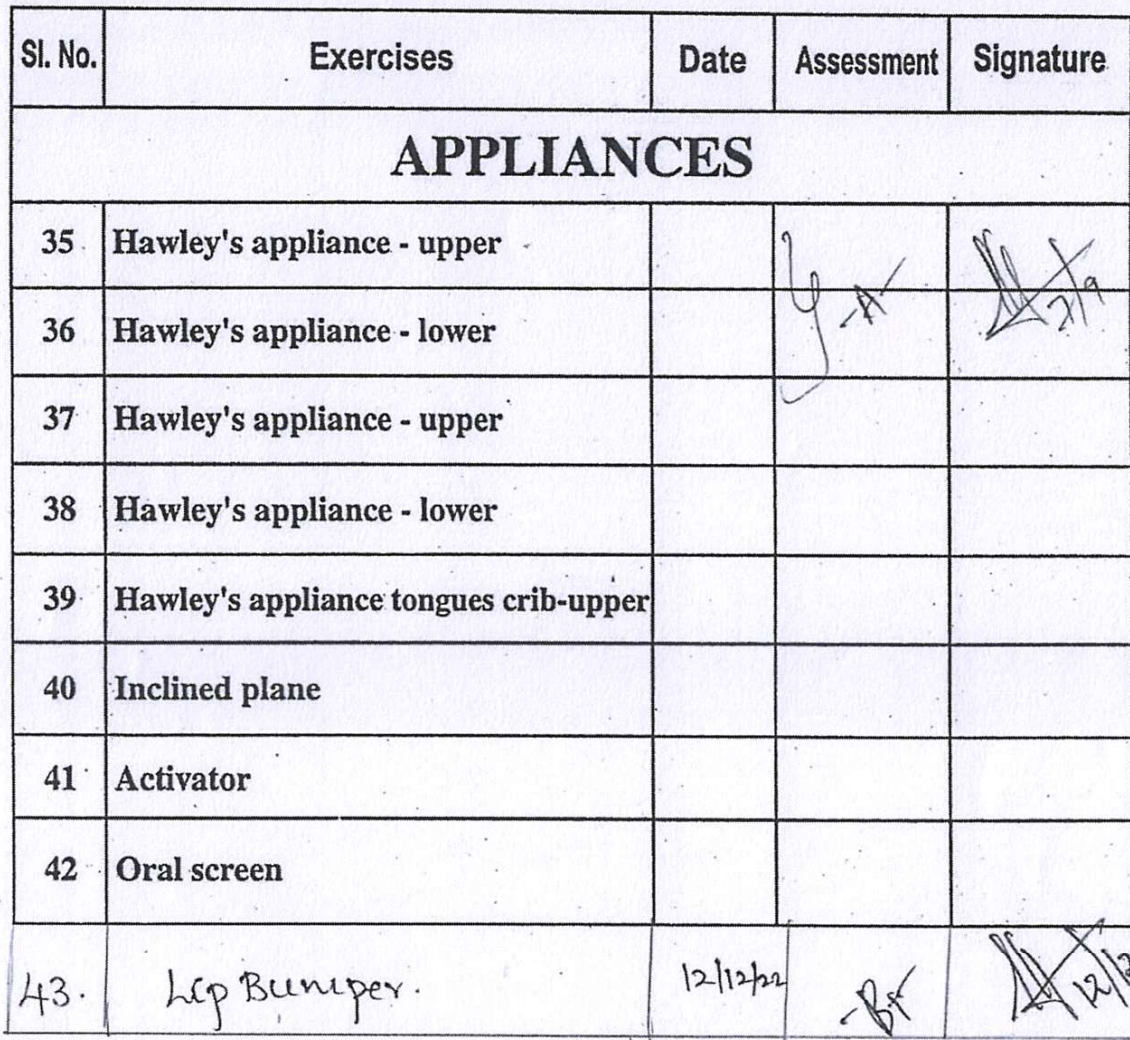 Sl. No. Exercises Date Assessment Signature
APPLIANCES
35 Hawley's appliance - upper
36 Hawley's appliance - lower -A- 7/9
37 Hawley's appliance - upper
38 Hawley's appliance - lower
39 Hawley's appliance tongues crib-upper
40 Inclined plane
41 Activator
42 Oral screen
43. Lip Bumper. 12/12/22 12/12